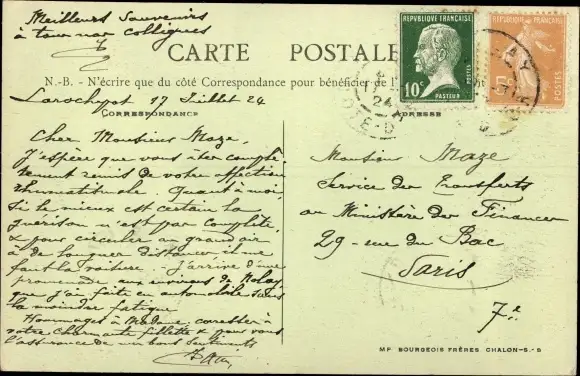 Meilleurs souvenirs
à tous nos collègues
CARTE POSTALE
N.-B. - N'écrire que du côté Correspondance pour bénéficier de l'
RÉPUBLIQUE FRANÇAISE
10c
PASTEUR
POSTES
RÉPUBLIQUE FRANÇAISE
5c
POSTES
Larochepot 17 Juillet 24
CORRESPONDANCE
ADRESSE
Cher Monsieur Maze,
J'espère que vous êtes complè-
tement remis de votre affection
rhumatismale. Quant à moi,
si le mieux est certain la
guérison n'est pas complète
& pour circuler au grand air
à de longues distances, il me
faut la voiture. J'arrive d'une
promenade aux environs de Nolay
que j'ai faite en automobile sans
la moindre fatigue
Hommages à Madame, caresses à
votre charmante fillette & pour vous
l'assurance de mes bons sentiments
Monsieur Maze
Service des Transferts
au Ministère des Finances
29 - rue du Bac
Paris
7e
MP BOURGEOIS FRÈRES CHALON-S-S